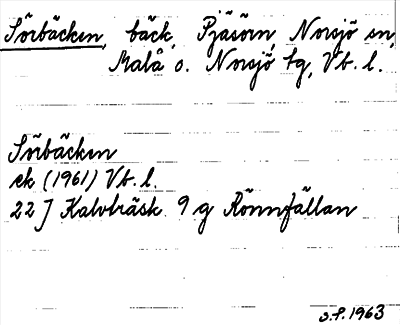 Sörbäcken, bäck, Pjäsörn, Norsjö sn,
Malå o. Norsjö tg, Vb. l.
Sörbäcken
ek (1961) Vb. l.
22 J Kalvträsk 9 g Rönnfällan
O.P. 1963